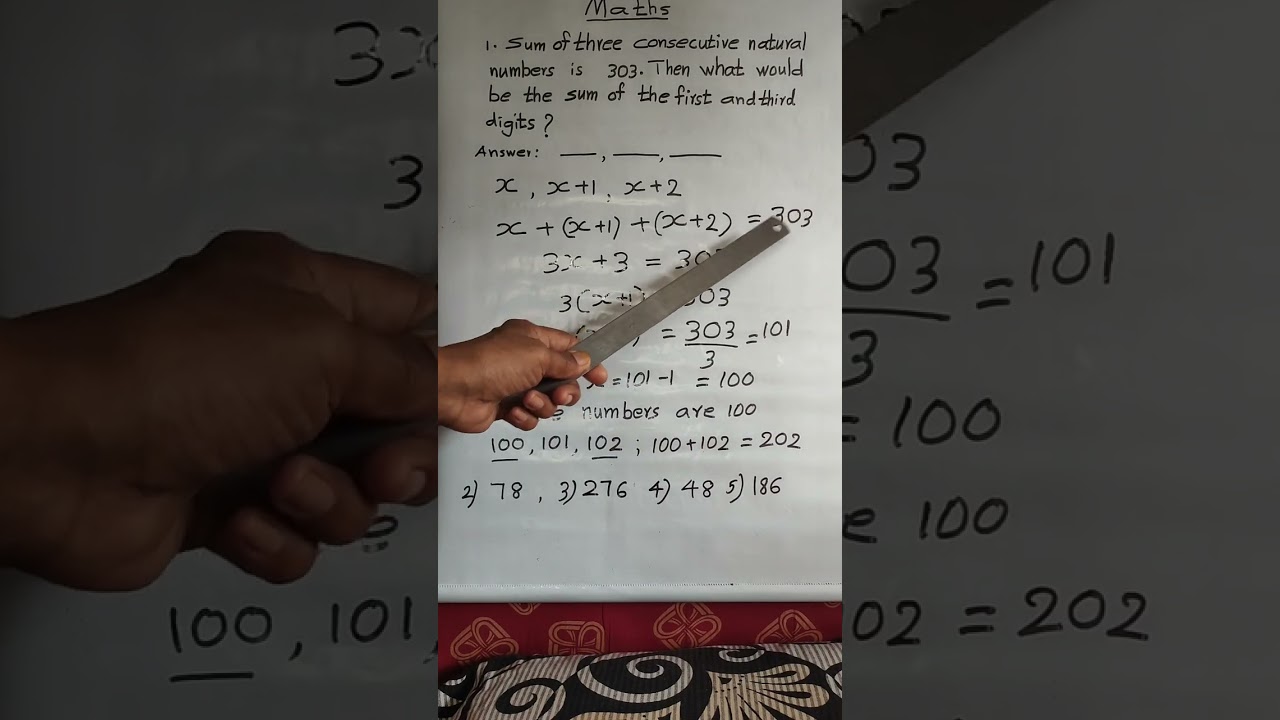 Maths
1. Sum of three consecutive natural
numbers is 303. Then what would
be the sum of the first and third
digits?
Answer: __, __, __
x, x+1, x+2
x + (x+1) + (x+2) = 303
3x + 3 = 30
3(x+1) 303
= 303/3 = 101
= 101 - 1 = 100
numbers are 100
100, 101, 102 ; 100 + 102 = 202
2) 78, 3) 276 4) 48 5) 186